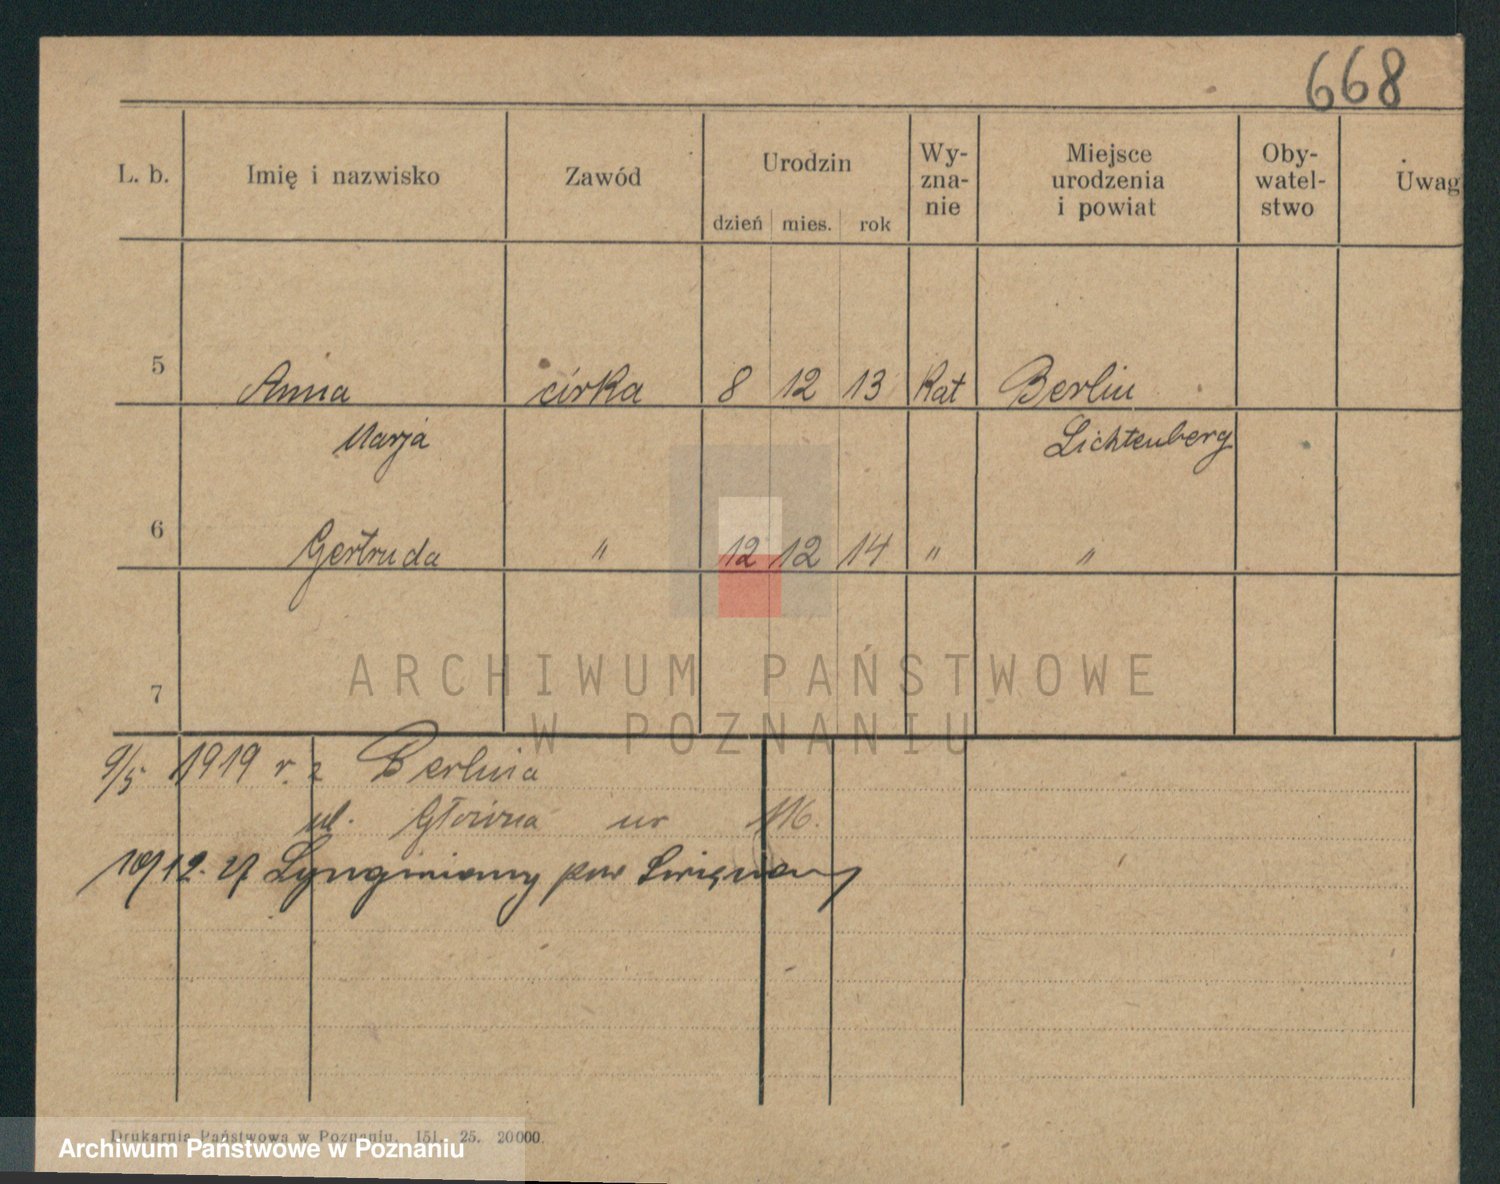 668
L. b. Imię i nazwisko Zawód Urodzin Wy-zna-nie Miejsce urodzenia i powiat Oby-watel-stwo Uwag
dzień mies. rok
5 Anna córka 8 12 13 Kat Berlin
Marja Lichtenberg
6 Gertruda " 12 12 14 " "
7
ARCHIWUM PAŃSTWOWE
W POZNANIU
9/5 1919 r. z Berlina
ul. Główna nr 116.
12. 27 pow Święciany
Drukarnia Państwowa w Poznaniu. 151. 25. 20000.
Archiwum Państwowe w Poznaniu